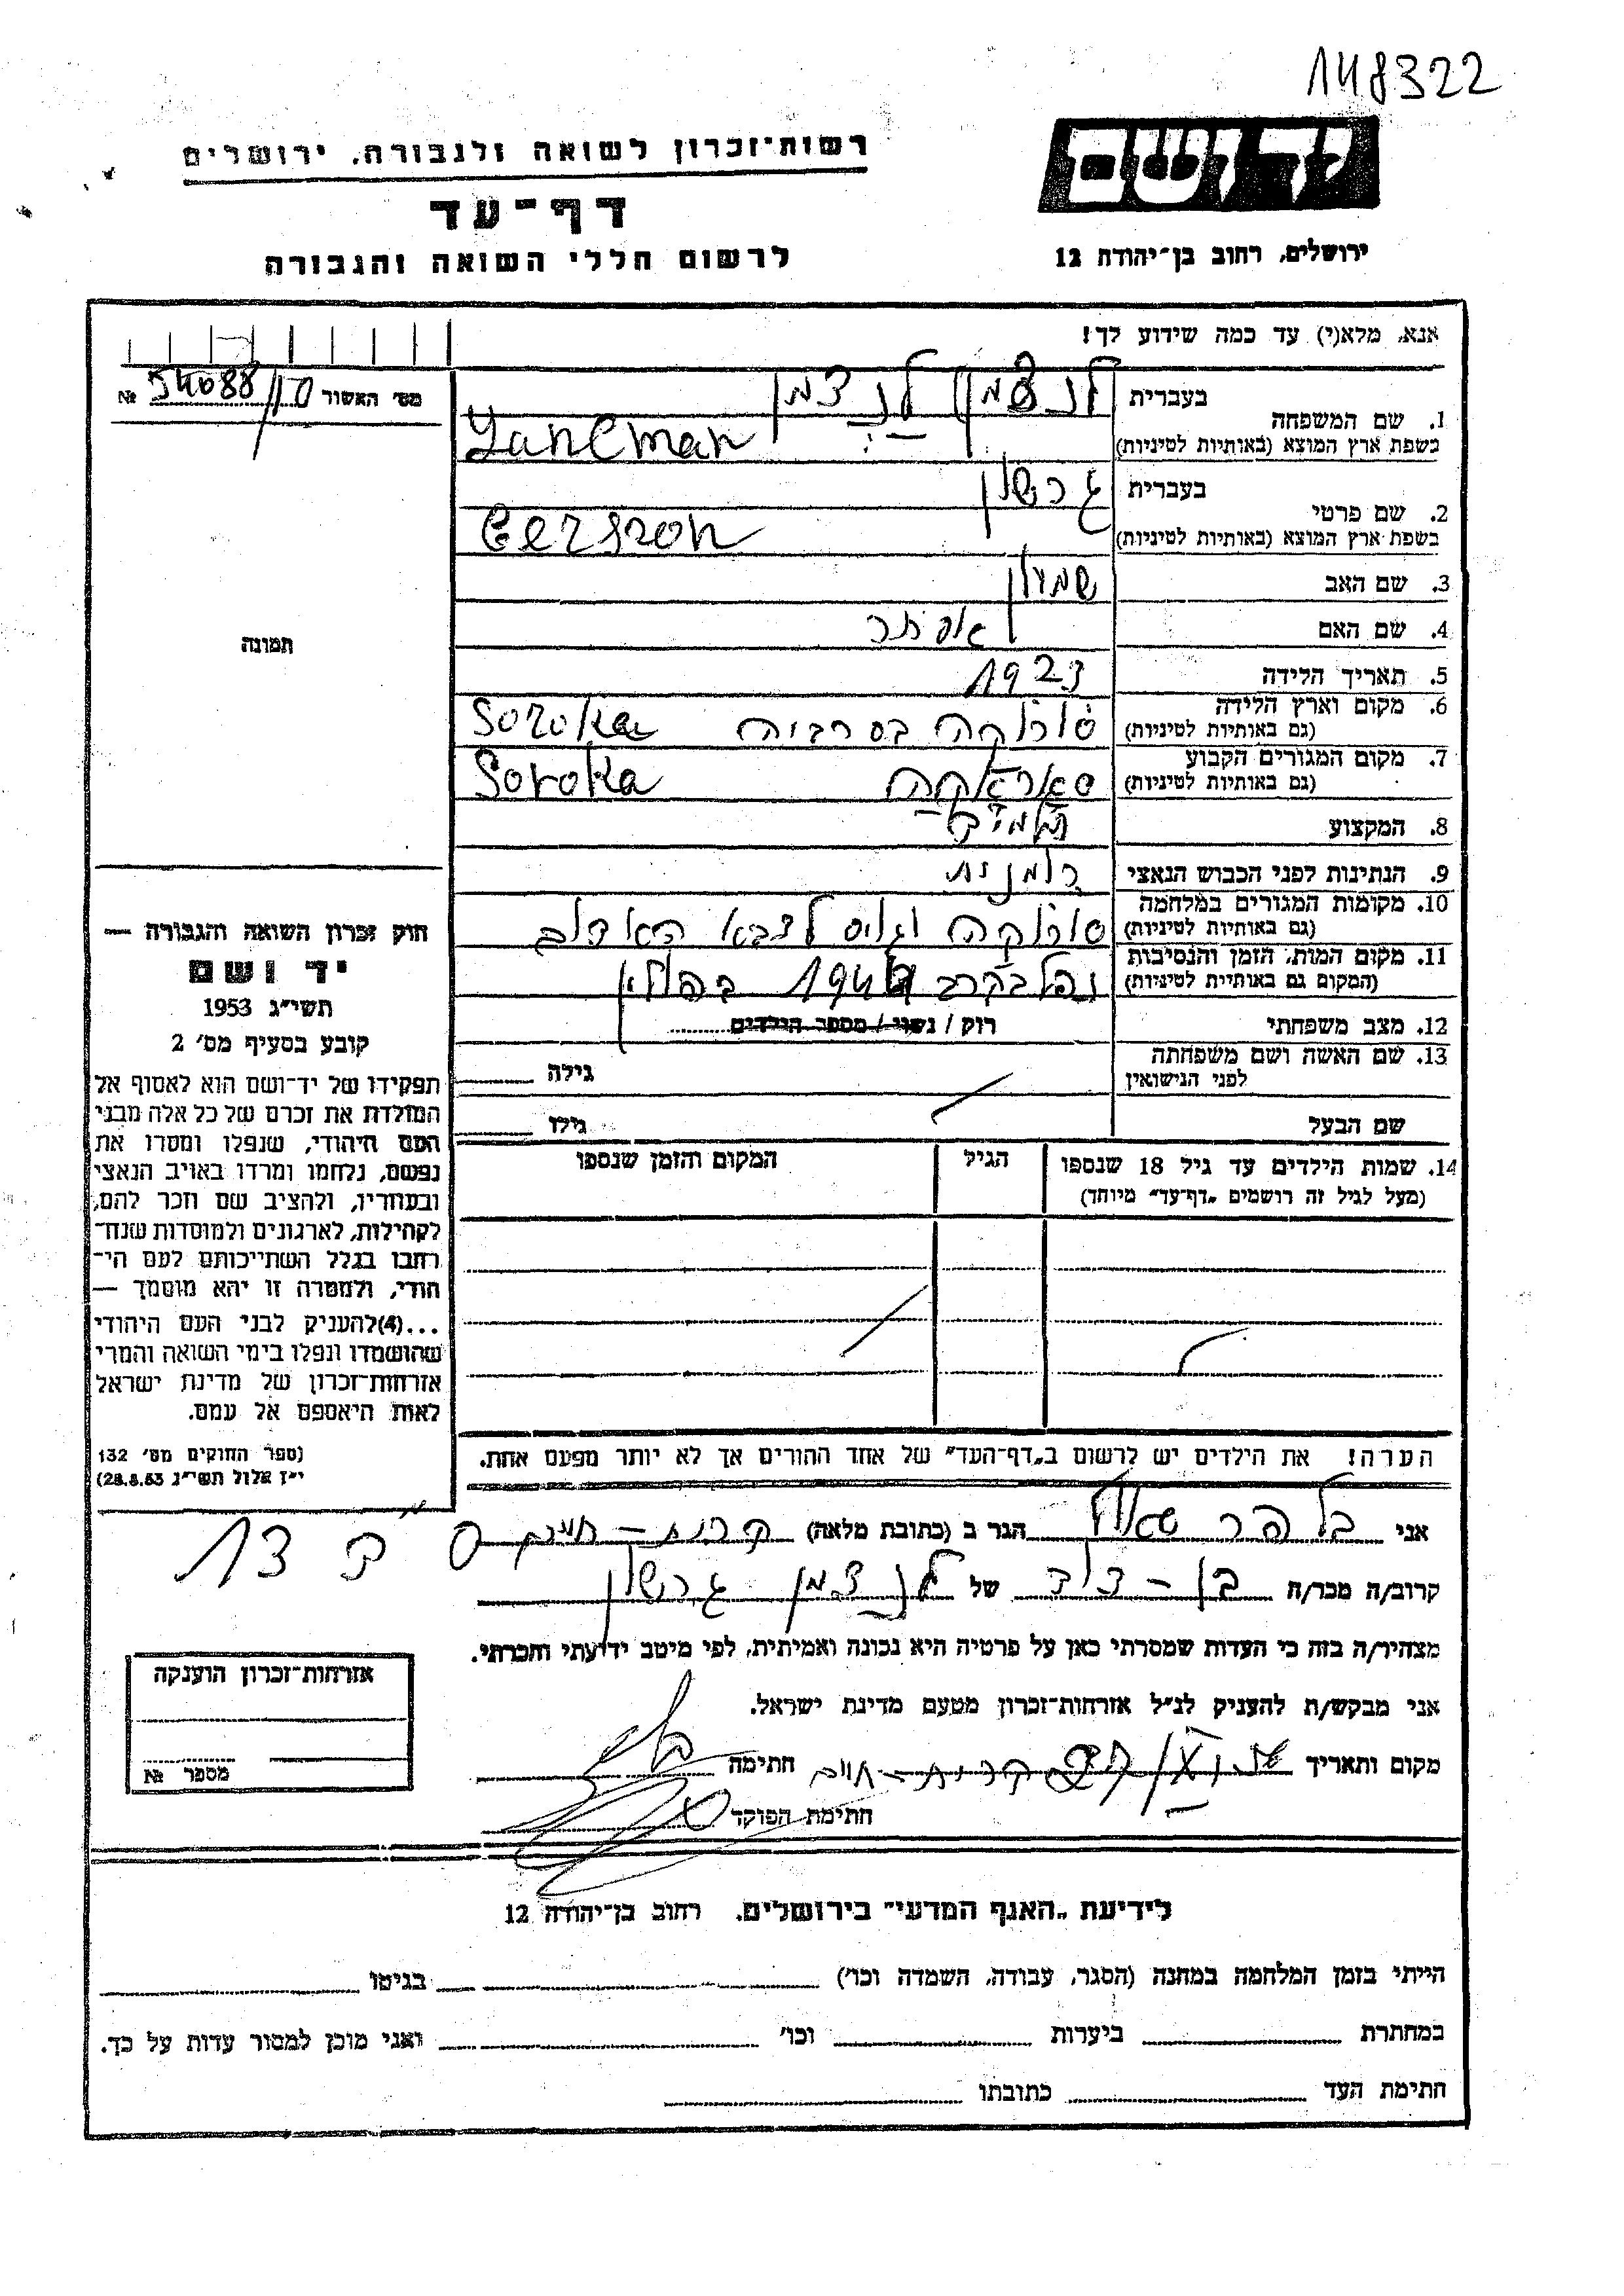 148322
יד ושם
רשות־זכרון לשואה ולגבורה, ירושלים
דף־עד
לרשום חללי השואה והגבורה
ירושלים, רחוב בן־יהודה 12
אנא, מלא(י) עד כמה שידוע לך!
מס׳ האשור № 54088/10
1. שם המשפחה
בעברית לנצמן
בשפת ארץ המוצא (באותיות לטיניות) Lancman
2. שם פרטי
בעברית גרשון
בשפת ארץ המוצא (באותיות לטיניות) Gerszon
3. שם האב שמעון
4. שם האם אסתר
תמונה
5. תאריך הלידה 1923
6. מקום וארץ הלידה
(גם באותיות לטיניות) סורוקה בסרביה Soroka
7. מקום המגורים הקבוע
(גם באותיות לטיניות) סאראקה Soroka
8. המקצוע תלמיד
9. הנתינות לפני הכבוש הנאצי רומנית
10. מקומות המגורים במלחמה
(גם באותיות לטיניות) סורוקה וגויס לצבא האדום
11. מקום המות, הזמן והנסיבות
(המקום גם באותיית לטיניות) נפל בקרב 1944 בפולין
12. מצב משפחתי רוק / נשוי / מספר הילדים
13. שם האשה ושם משפחתה
לפני הנישואין
גילה
שם הבעל
גילו
14. שמות הילדים עד גיל 18 שנספו
(מעל לגיל זה רושמים „דף־עד״ מיוחד)
הגיל
המקום והזמן שנספו
חוק זכרון השואה והגבורה —
יד ושם
תשי״ג 1953
קובע בסעיף מס׳ 2
תפקידו של יד־ושם הוא לאסוף אל
המולדת את זכרם של כל אלה מבני
העם היהודי, שנפלו ומסרו את
נפשם, נלחמו ומרדו באויב הנאצי
ובעוזריו, ולהציב שם וזכר להם,
לקהילות, לארגונים ולמוסדות שנח־
רבו בגלל השתייכותם לעם הי־
הודי, ולמטרה זו יהא מוסמך —
...(4)להעניק לבני העם היהודי
שהושמדו ונפלו בימי השואה והמרי
אזרחות־זכרון של מדינת ישראל
לאות היאספם אל עמם.
(ספר החוקים מס׳ 132
י״ז אלול תשי״ג 28.8.53)
הערה! את הילדים יש לרשום ב„דף־העד״ של אחד ההורים אך לא יותר מפעם אחת.
אני הגר ב (כתובת מלאה) קרית־חיים
קרוב/ה מכר/ה בן־דוד של לנצמן גרשון
מצהיר/ה בזה כי העדות שמסרתי כאן על פרטיה היא נכונה ואמיתית, לפי מיטב ידיעתי והכרתי.
אני מבקש/ת להעניק לנ״ל אזרחות־זכרון מטעם מדינת ישראל.
מקום ותאריך קרית־חיים חתימה
חתימת הפוקד
אזרחות־זכרון הוענקה
מספר №
לידיעת „האגף המדעי״ בירושלים, רחוב בן־יהודה 12
הייתי בזמן המלחמה במחנה (הסגר, עבודה, השמדה וכו׳) בגיטו
במחתרת ביערות וכו׳ ואני מוכן למסור עדות על כך.
חתימת העד כתובתו